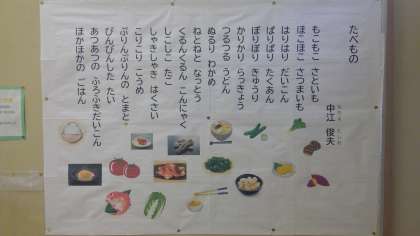 たべもの
中江 俊夫
なかえ としお
もこもこ さといも
ほこほこ さつまいも
はりはり だいこん
ぱりぱり たくあん
ぽりぽり きゅうり
かりかり らっきょう
つるつる うどん
ぬるり わかめ
ねとねと なっとう
くるんくるん こんにゃく
しこしこ たこ
しゃきしゃき はくさい
こりこり こうめ
ぷりんぷりんの とまと
ぴんぴんした たい
あつあつの ふろふきだいこん
ほかほかの ごはん